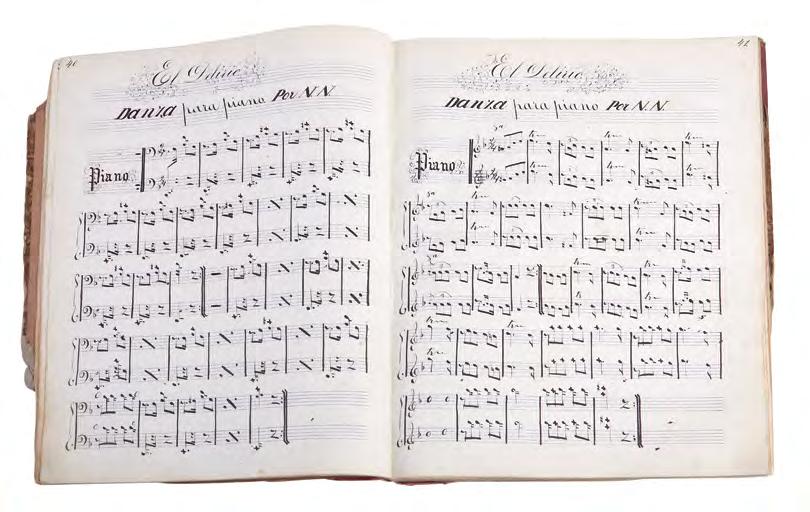 40
El Delirio
Danza para piano Por N.N.
Piano
41
El Delirio
Danza para piano Por N.N.
Piano